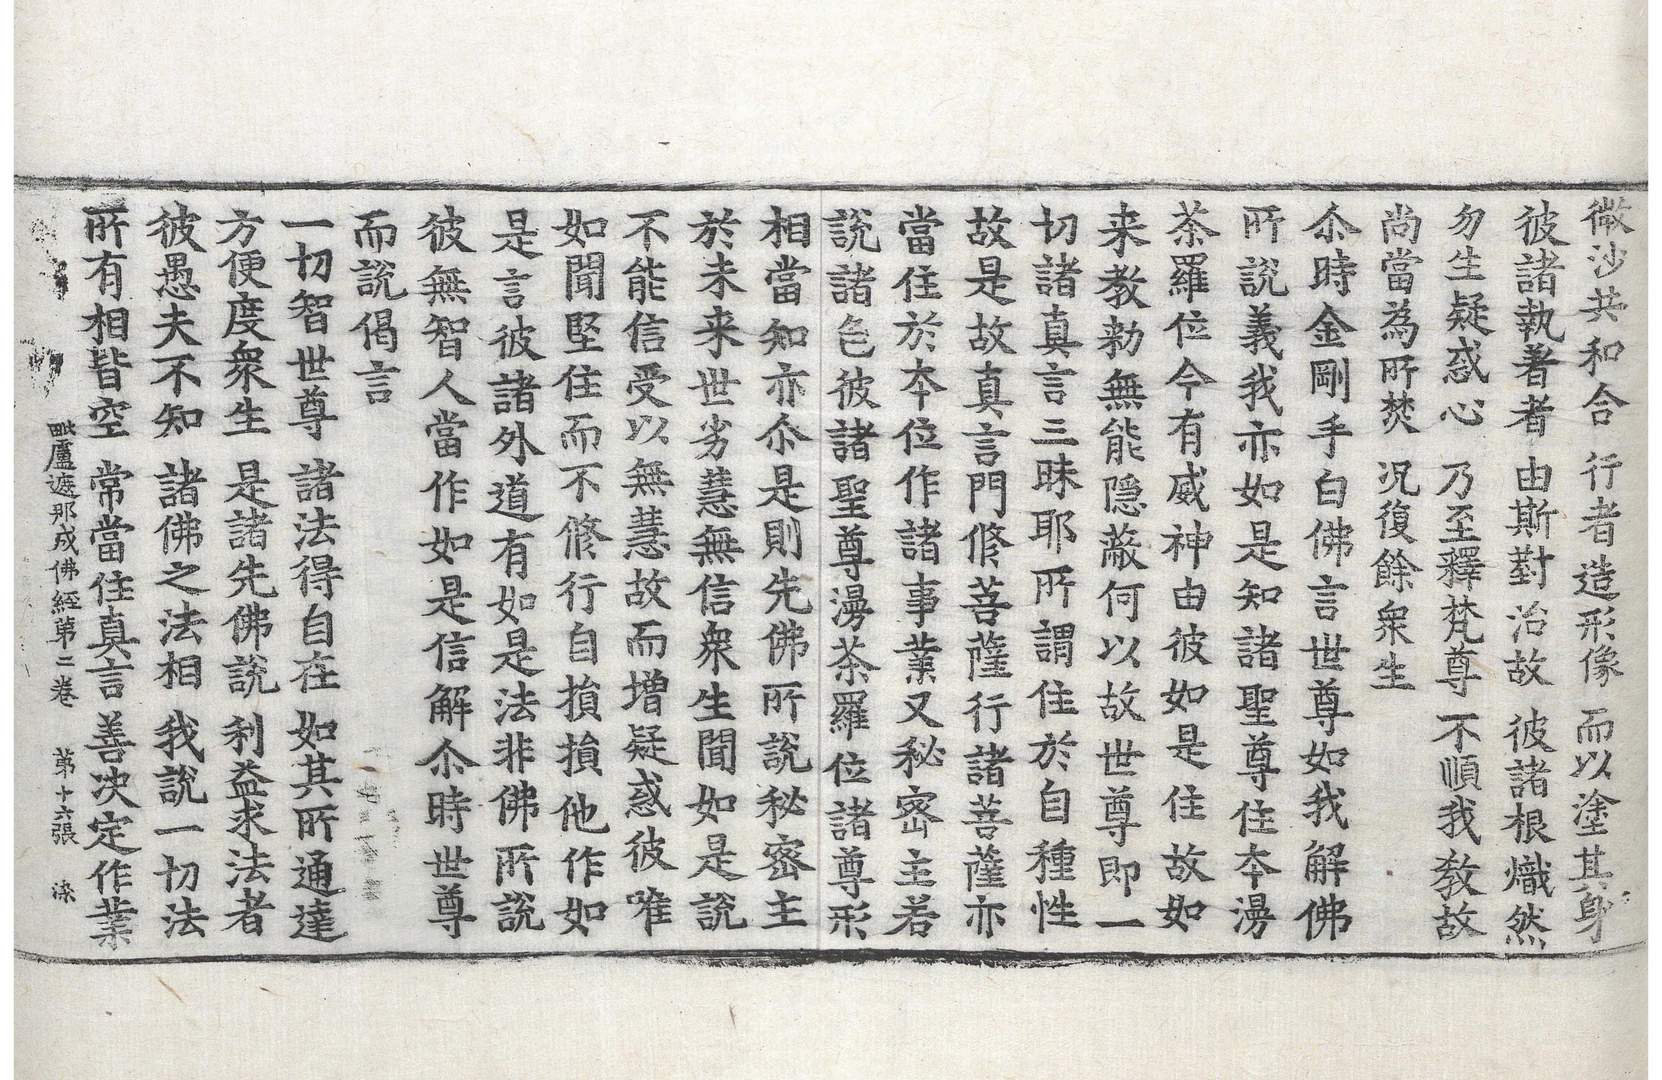 微沙共和合 行者造形像 而以塗其身
彼諸執著者 由斯對治故 彼諸根熾然
勿生疑惑心 乃至釋梵尊 不順我教故
尚當為所焚 况復餘衆生
尒時金剛手白佛言世尊如我解佛
所說義我亦如是知諸聖尊住夲漫
茶羅位今有威神由彼如是住故如
来教勑無能隱蔽何以故世尊即一
切諸真言三昧耶所謂住於自種性
故是故真言門修菩薩行諸菩薩亦
當住於夲位作諸事業又秘密主若
說諸色彼諸聖尊漫茶羅位諸尊形
相當知亦尒是則先佛所說秘密主
於未来世劣慧無信衆生聞如是說
不能信受以無慧故而增疑惑彼唯
如聞堅住而不修行自損損他作如
是言彼諸外道有如是法非佛所說
彼無智人當作如是信解尒時世尊
而說偈言
一切智世尊 諸法得自在 如其所通達
方便度衆生 是諸先佛說 利益求法者
彼愚夫不知 諸佛之法相 我說一切法
所有相皆空 常當住真言 善決定作業
毗盧遮那成佛經第二卷 第十六張 染